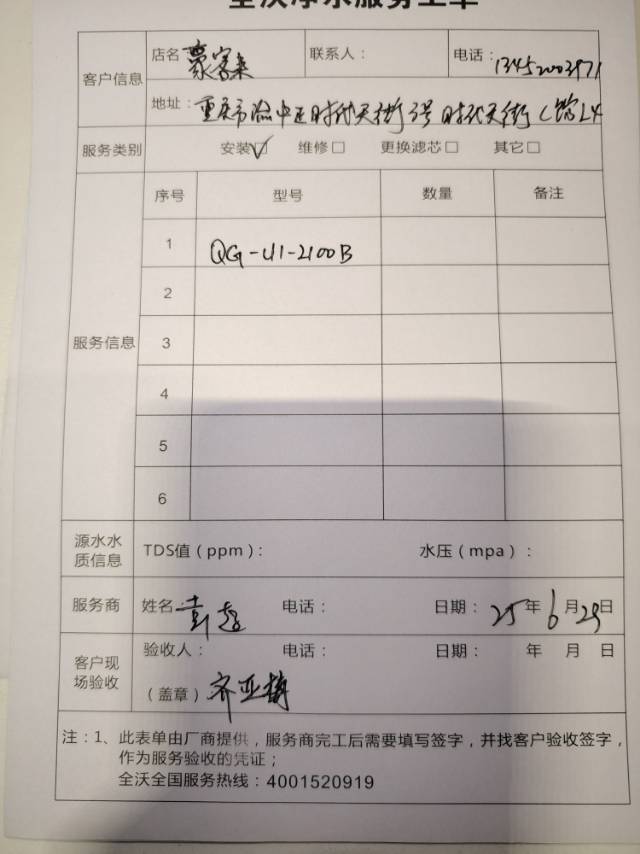 全沃净水服务工单
客户信息 店名 豪客来 联系人： 电话：13452003971
地址：重庆市渝中区时代天街3号时代天街C馆L4
服务类别 安装☑ 维修□ 更换滤芯□ 其它□
服务信息 序号 型号 数量 备注
1 QG-U1-2100B
2
3
4
5
6
源水水质信息 TDS值（ppm）： 水压（mpa）：
服务商 姓名： 电话： 日期：25年6月29日
客户现场验收 验收人： 电话： 日期： 年 月 日
（盖章）齐亚梅
注：1、此表单由厂商提供，服务商完工后需要填写签字，并找客户验收签字，
作为服务验收的凭证；
全沃全国服务热线：4001520919